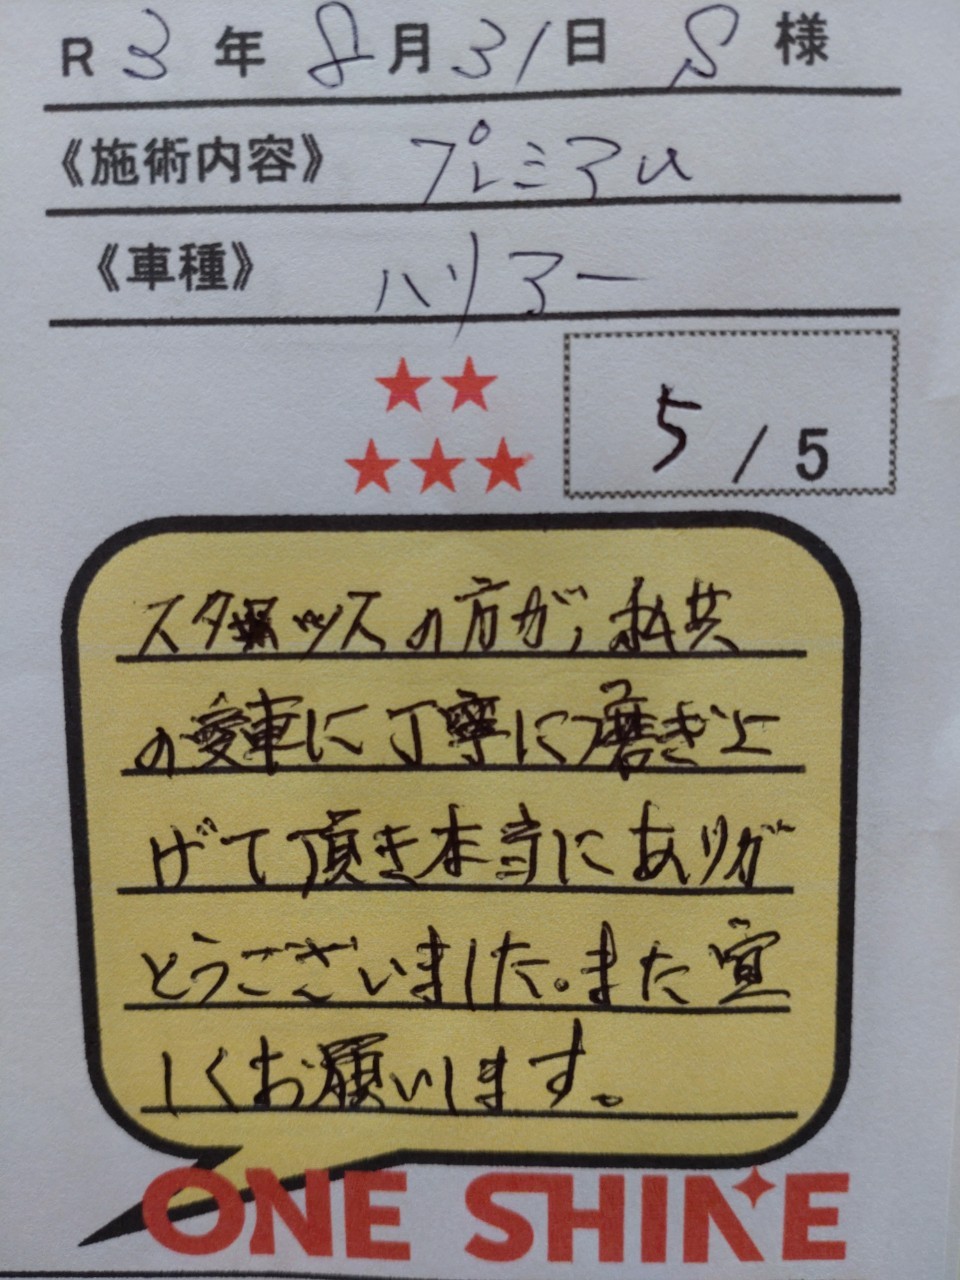 R 3 年 8 月 31 日 S 様
《施術内容》 プレミアム
《車種》 ハリアー
5 / 5
スタッフの方が、私共
の愛車に丁寧に磨き上
げて頂き本当にありが
とうございました。また宜
しくお願いします。
ONE SHINE